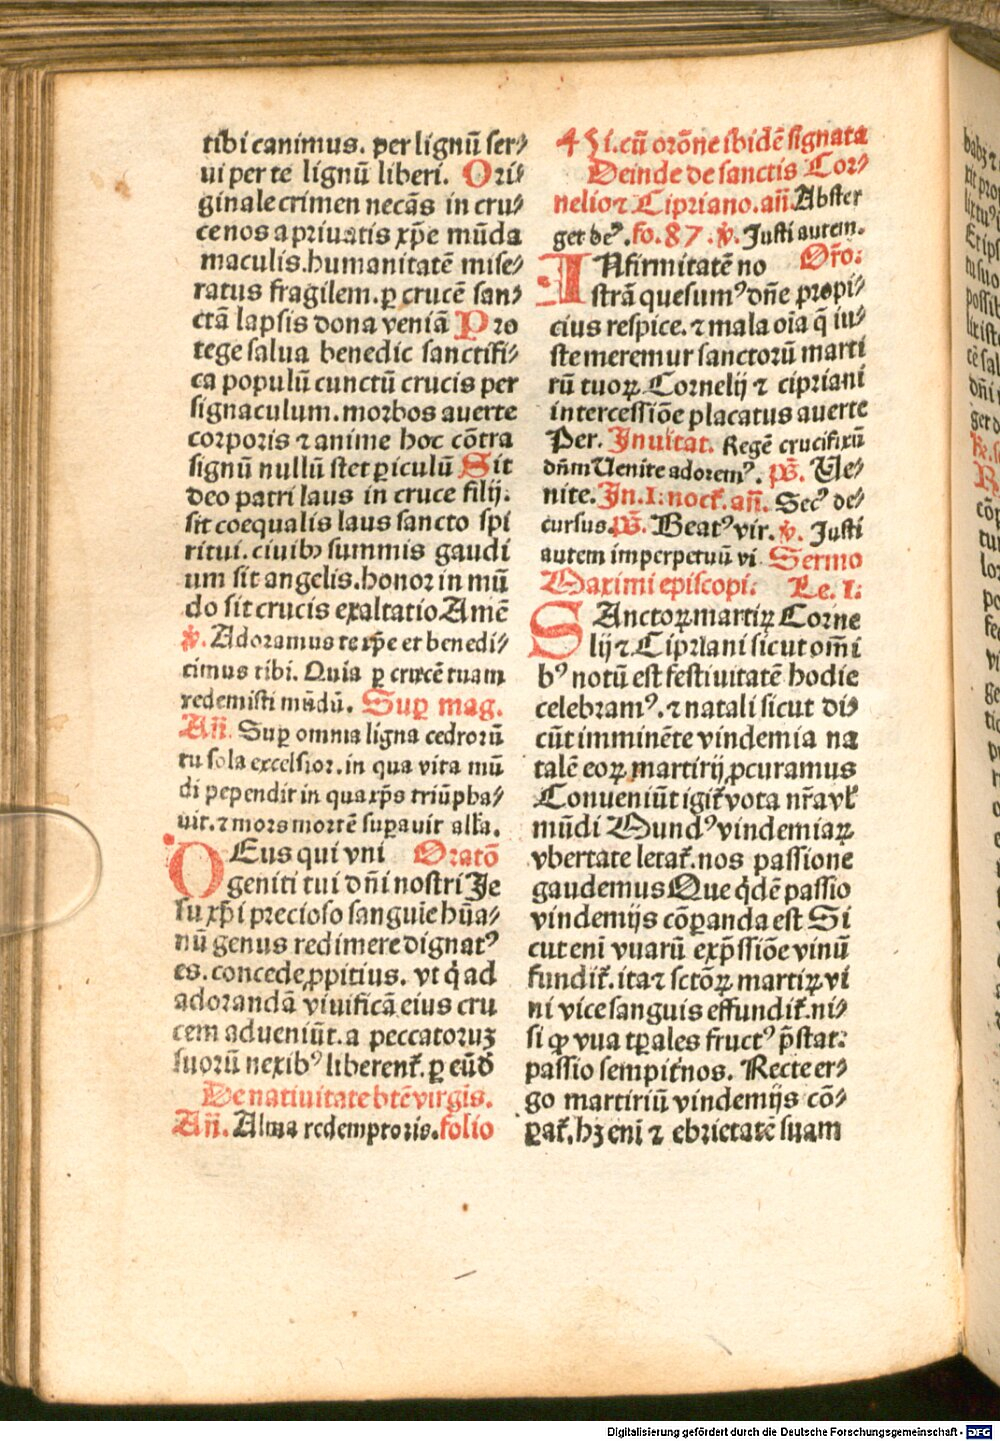 tibi canimus. per lignū ser⸗
ui per te lignū liberi. Ori⸗
ginale crimen necās in cru⸗
ce nos a priuatis xp̄e mūda
maculis. humanitatē mise⸗
ratus fragilem. ꝑ crucē san⸗
ctā lapsis dona veniā Pro
tege salua benedic sanctifi⸗
ca populū cunctū crucis per
signaculum. morbos auerte
corporis ⁊ anime hoc cōtra
signū nullū stet ꝑiculū Sit
deo patri laus in cruce filij.
sit coequalis laus sancto spi
ritui. ciuibꝫ summis gaudi
um sit angelis. honor in mū
do sit crucis exaltatio Amē
v̄. Adoramus te xp̄e et benedi⸗
cimus tibi. Quia ꝑ crucē tuam
redemisti mūdū. Suꝑ mag.
An̄. Suꝑ omnia ligna cedrorū
tu sola excelsior. in qua vita mū
di pependit in qua xp̄s triūpha⸗
uit. ⁊ mors mortē suꝑauit alla.
DEus qui vni Oratō
geniti tui dn̄i nostri Je
su xp̄i precioso sanguīe hūa⸗
nū genus redimere dignatꝰ
es. concede ꝓpitius. vt q̄ ad
adorandā viuificā eius cru
cem adueniūt. a peccatoruꝫ
suorū nexibꝰ liberent̄. ꝑ eūd̄
De natiuitate btē virgīs.
An̄. Alma redemptoris. folio
451. cū orōne ibidē signata
Deinde de sanctis Cor⸗
nelio ⁊ Cipriano. an̄. Abster
get deꝰ. fo. 87. v̄. Justi autem.
INfirmitatē no Or̄o:
strā quesumꝰ dn̄e propi⸗
cius respice. ⁊ mala oīa q̄ iu⸗
ste meremur sanctorū marti
rū tuoꝝ Cornelij ⁊ cipriani
intercessiōe placatus auerte
Per. Inuitat. Regē crucifixū
dn̄m Uenite adoremꝰ. ps̄. Ue⸗
nite. In. I. noct̄. an̄. Secꝰ de⸗
cursus. ps̄. Beatꝰ vir. v̄. Justi
autem imperpetuū vi Sermo
Maximi episcopi. Le. I:
SAnctoꝝ martiꝝ Corne
lij ⁊ Cipriani sicut om̄i
bꝰ notū est festiuitatē hodie
celebramꝰ. ⁊ natali sicut di⸗
cūt imminēte vindemia na
talē eoꝝ martirij ꝓcuramus
Conueniūt igit̄ vota nr̄a vl̄
mūdi Mundꝰ vindemiaꝝ
vbertate letat̄. nos passione
gaudemus Que q̇dē passio
vindemijs cōꝑanda est Si
cut eni vuarū exp̄ssiōe vinū
fundit̄. ita ⁊ sctōꝝ martiꝝ vi
ni vice sanguis effundit̄. ni⸗
si ꝙ vua tꝑales fructꝰ p̄stat:
passio sempit̄nos. Recte er⸗
go martiriū vindemijs cō⸗
ꝑat̄. hꝫ eni ⁊ ebrietatē suam
Digitalisierung gefördert durch die Deutsche Forschungsgemeinschaft - DFG